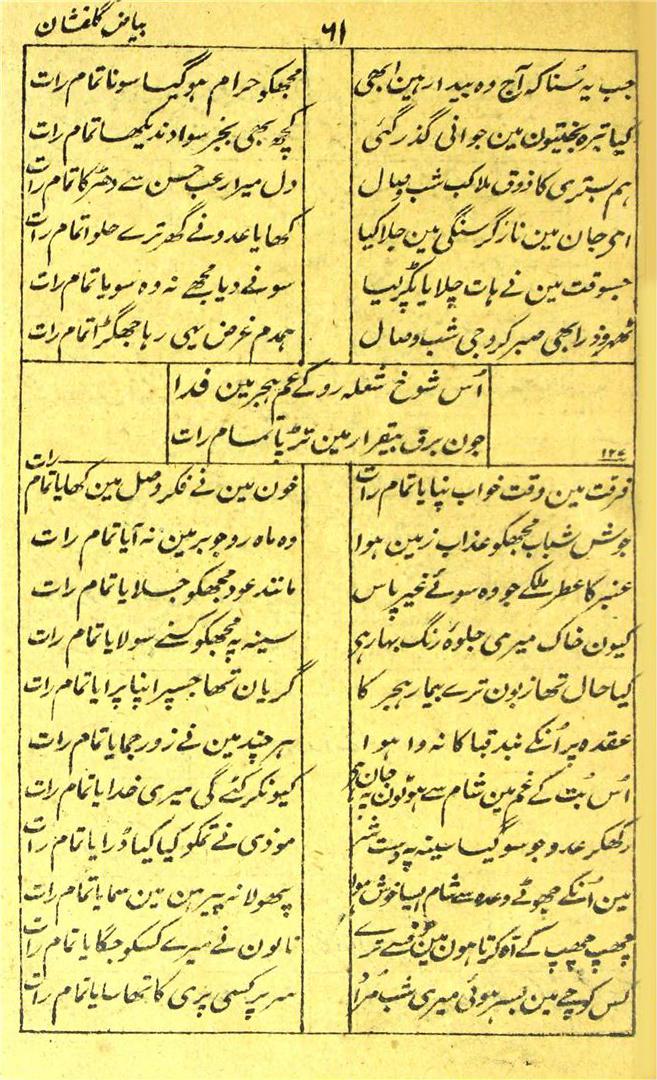 بیاض گلفشان
۶۱
جب یہ سُنا کہ آج وہ بیدار ہین ابھی
مجھکو حرام ہوگیا سونا تمام رات
کیا تیرہ بختیون مین جوانی گذر گئی
کچھ بھی بجز سواد ندیکھا تمام رات
ہم بستری کا ذوق ملا کب شب وصال
دل میرا رعب حسن سے دھڑکا تمام رات
ای جان مین نار گرسنگی مین جلا کیا
کھایا عدو نے گھر ترے حلوا تمام رات
جسوقت مین نے ہات چلایا پکڑ لیا
سونے دیا مجھے نہ وہ سویا تمام رات
ٹھہرو ذرا ابھی صبر کرو جی شب وصال
ہمدم غرض یہی رہا جھگڑا تمام رات
اُس شوخ شعلہ رو کے غم ہجر مین فدا
جون برق بیقرار مین تڑپا تمام رات
۱۲۷
فرقت مین وقت خواب نپایا تمام رات
خون مین نے فکر وصل مین کھایا تمام رات
جوش شباب مجھکو عذاب زمین ہوا
وہ ماہ رو جو بر مین نہ آیا تمام رات
عنبر کا عطر ملکے جو وہ سوئے غیر پاس
مانند عود مجھکو جلایا تمام رات
کیون خاک میری جلوۂ رنگ بہار ہی
سینہ پہ مجھکو کسنے سولایا تمام رات
کیا حال تھا زبون ترے بیمار ہجر کا
گریان تھا جسپر اپنا پرایا تمام رات
عقدہ پر اُنکے بند قبا کا نہ وا ہوا
ہر چند مین نے زور جمایا تمام رات
اُس بُت کے غم مین شام سے ہونٹون پہ جان ہی
کیونکر کٹے گی میری خدایا تمام رات
رکھکر عدو جو سوگیا سینہ پہ دست
موذی نے تمکو کیا کیا ڈرایا تمام رات
مین اُنکے جھوٹے وعدہ سے شام ایسا خوش ہوا
پھولا نہ پیرہن مین سمایا تمام رات
چھپ چھپ کے آہ کرتا ہون مین خوف سے ترے
نالون نے میرے کسکو جگایا تمام رات
کس کوچے مین بسر ہوئی میری شب مُراد
سر پر کسی پری کا تھا سایا تمام رات